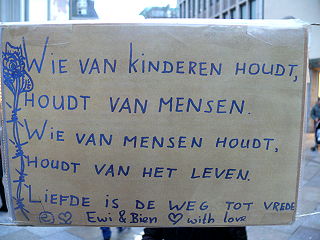 WIE VAN KINDEREN HOUDT,
HOUDT VAN MENSEN.
WIE VAN MENSEN HOUDT,
HOUDT VAN HET LEVEN.
LIEFDE IS DE WEG TOT VREDE
Ewi & Bien ♡ with love